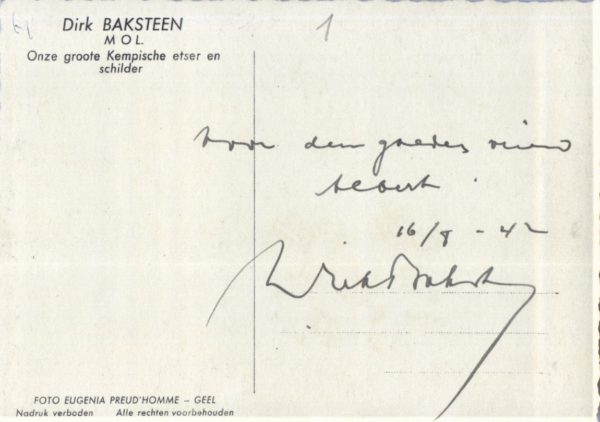 Dirk BAKSTEEN
MOL.
Onze groote Kempische etser en
schilder
1
voor den goeden vriend
Albert.
16/8 - 42
Dirk Baksteen
FOTO EUGENIA PREUD'HOMME – GEEL
Nadruk verboden Alle rechten voorbehouden